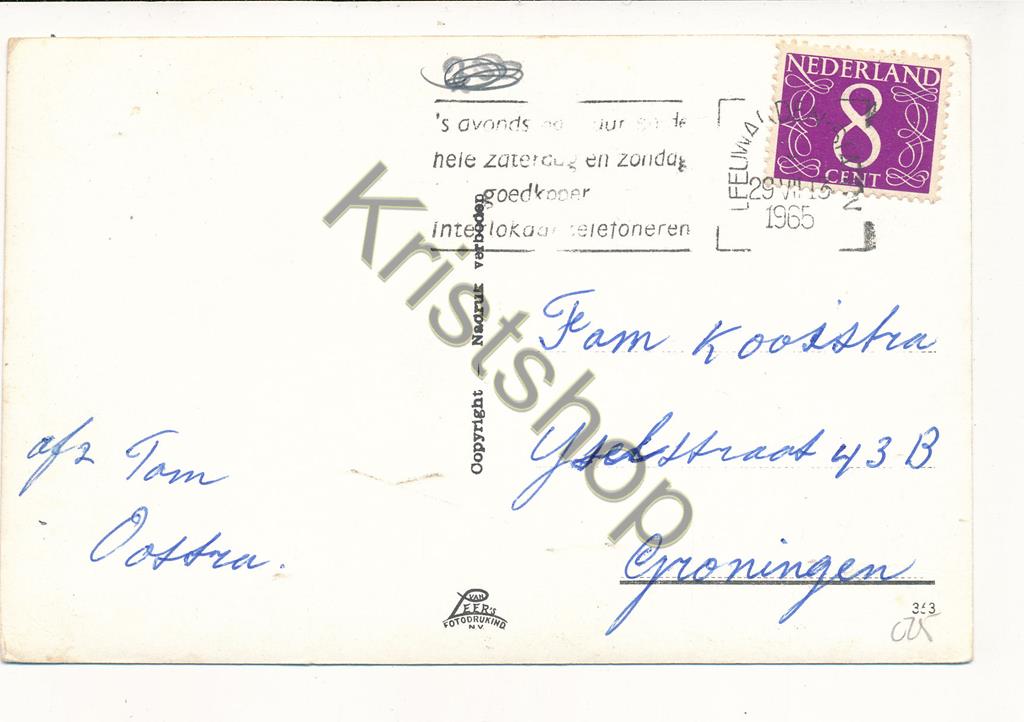 's avonds
hele zaterdag en zondag
goedkoper
interlokaal telefoneren
LEEUWARDEN
29 VII 15
1965
NEDERLAND
8
CENT
Kristshop
Copyright - Nadruk verboden
Fam Kooistra
Yselstraat 43 B
Groningen
afz Tom
Oostra.
VAN
LEER'S
FOTODRUKIND.
N.V.
353